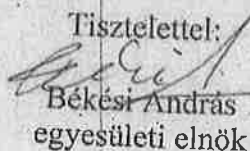 Tisztelettel:
Békési András
egyesületi elnök